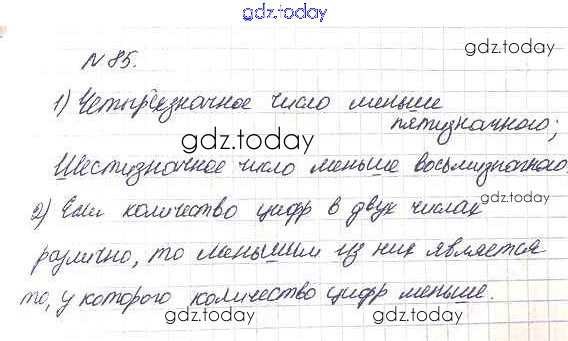 gdz.today
№ 85.
gdz.today
1) Четырёхзначное число меньше
пятизначного;
gdz.today
Шестизначное число меньше восьмизначного.
gdz.today
2) Если количество цифр в двух числах
различно, то меньшим из них является
то, у которого количество цифр меньше.
gdz.today
gdz.today